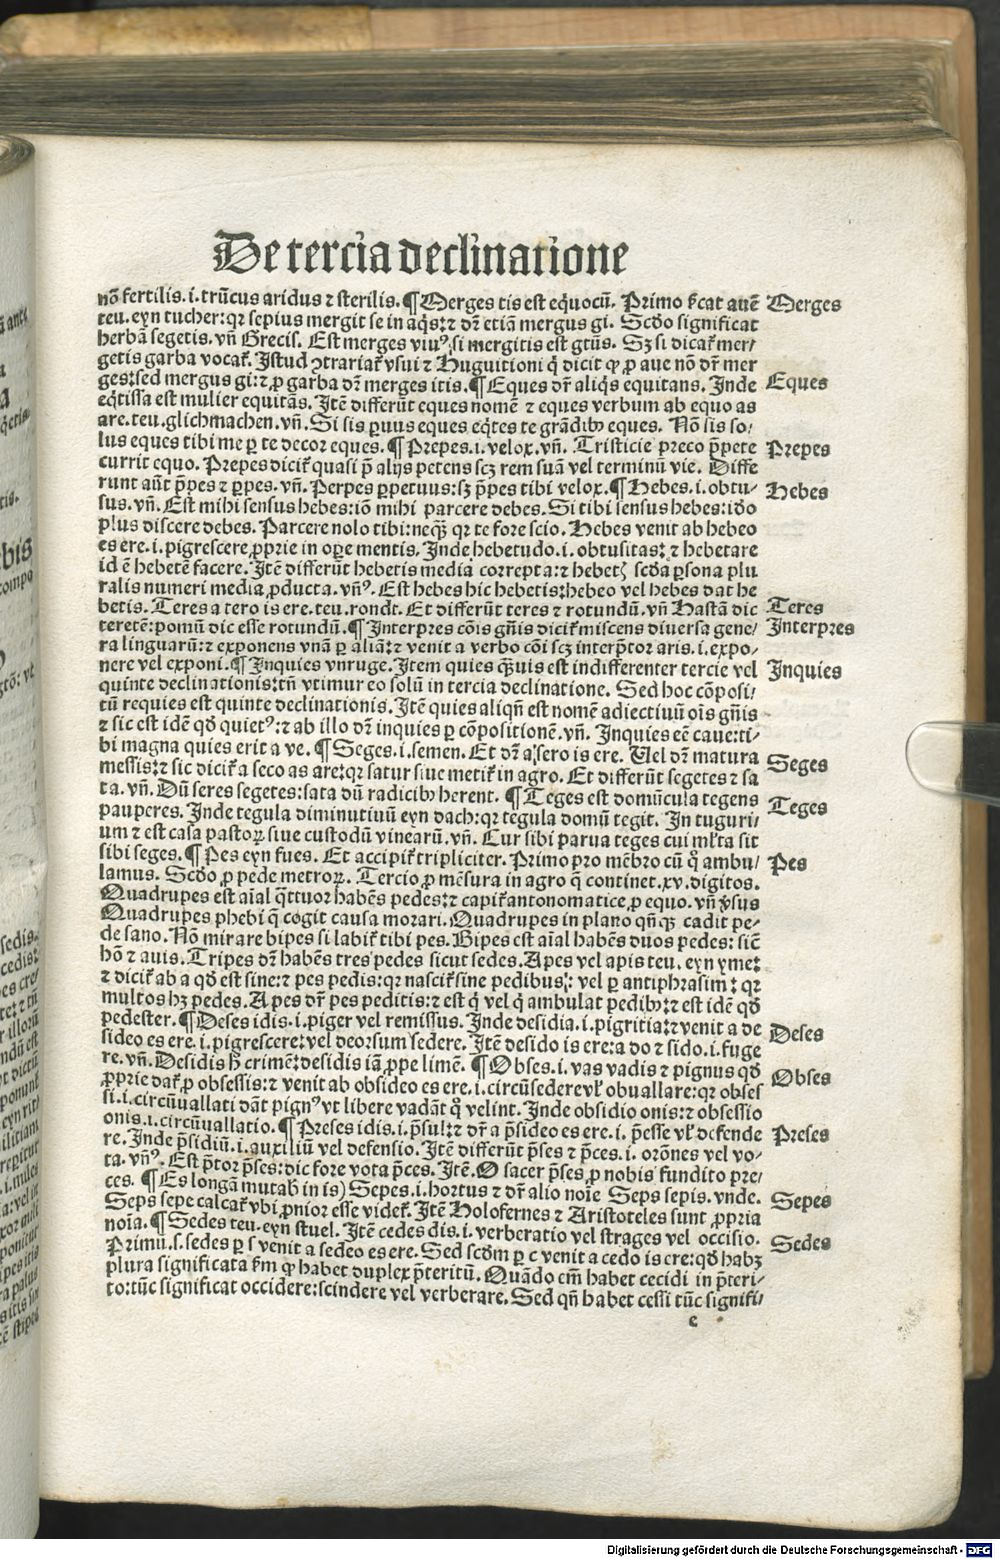 De tercia declinatione
nõ fertilis.i.trũcus aridus ⁊ sterilis.¶Merges tis est eq̃uocũ. Primo s̃cat auẽ Merges
teu.eyn tucher:qꝛ sepius mergit se in aq̃s:⁊ dr̃ etiã mergus gi. Scďo significat
herbã segetis.vñ Grecis. Est merges viuꝰ,si mergitis est gtũs. Sꝫ si dicat᷑ mer⸗
getis garba vocat᷑. Istud ↄ̃trariat᷑ vsui ⁊ Huguitioni q̃ dicit ꝙ ꝓ aue nõ dr̃ mer
ges:sed mergus gi:⁊ ꝓ garba dr̃ merges itis.¶Eques dr̃ aliq̃s equitans. Inde Eques
eq̃tissa est mulier equitãs. Itẽ differũt eques nomẽ ⁊ eques verbum ab equo as
are.teu.glichmachen.vñ. Si sis ꝑuus eques eq̃tes te grãdibꝰ eques. Nõ sis so⸗
lus eques tibi me ꝑ te decor eques.¶Prepes.i.velox.vñ. Tristicie preco p̃pete Prepes
currit equo. Prepes dicit᷑ quasi p̃ alijs petens scꝫ rem suã vel terminũ vie. Diffe
runt aũt p̃pes ⁊ ꝑpes.vñ. Perpes ꝑpetuus:sꝫ p̃pes tibi velox.¶Hebes.i.obtu⸗ Hebes
sus.vñ. Est mihi sensus hebes:iõ mihi parcere debes. Si tibi sensus hebes:iďo
plus discere debes. Parcere nolo tibi:neqꝫ qꝛ te fore scio. Hebes venit ab hebeo
es ere.i.pigrescere ꝓprie in oꝑe mentis. Inde hebetudo.i.obtusitas:⁊ hebetare
id ẽ hebetẽ facere. Itẽ differũt hebetis media correpta:⁊ hebetꝭ scďa ꝑsona plu
ralis numeri media ꝓducta.vñꝰ. Est hebes hic hebetis:hebeo vel hebes dat he
betis. Teres a tero is ere.teu.rondt. Et differũt teres ⁊ rotundũ.vñ Hastã dic Teres
teretẽ:pomũ dic esse rotundũ.¶Interpres cõis gñis dicit᷑ miscens diuersa gene⸗ Interpres
ra linguarũ:⁊ exponens vnã ꝑ aliã:⁊ venit a verbo cõi scꝫ interp̃tor aris.i.expo⸗
nere vel exponi.¶Inquies vnruge. Item quies q̃uis est indifferenter tercie vel Inquies
quinte declinationis:tñ vtimur eo solũ in tercia declinatione. Sed hoc cõposi⸗
tũ requies est quinte declinationis. Itẽ quies aliqñ est nomẽ adiectiuũ oĩs gñis
⁊ sic est idẽ qďo quietꝰ:⁊ ab illo dr̃ inquies ꝑ cõpositionẽ.vñ. Inquies eẽ caue:ti⸗
bi magna quies erit a ve.¶Seges.i.semen. Et dr̃ a sero is ere. Uel dr̃ matura Seges
messis:⁊ sic dicit᷑ a seco as are:qꝛ satur siue metit᷑ in agro. Et differũt segetes ⁊ sa
ta.vñ. Dũ seres segetes:sata dũ radicibꝰ herent.¶Teges est domũcula tegens Teges
pauperes. Inde tegula diminutiuũ eyn dach:qꝛ tegula domũ tegit. In tuguri⸗
um ⁊ est casa pastoꝝ siue custodũ vinearũ.vñ. Cur sibi parua teges cui ml̃ta sit
sibi seges.¶Pes eyn fues. Et accipit᷑ tripliciter. Primo pro mẽbro cũ q̊ ambu⸗ Pes
lamus. Scďo ꝓ pede metroꝝ. Tercio ꝓ mẽsura in agro q̃ continet.xv.digitos.
Quadrupes est aĩal q̃ttuor habẽs pedes:⁊ capit᷑ antonomatice ꝓ equo.vñ v̓sus
Quadrupes phebi q̃ cogit causa morari. Quadrupes in plano qñqꝫ cadit pe⸗
de sano. Nõ mirare bipes si labit᷑ tibi pes. Bipes est aĩal habẽs duos pedes: sic̃
hõ ⁊ auis. Tripes dr̃ habẽs tres pedes sicut sedes. Apes vel apis teu. eyn yme:
⁊ dicit᷑ ab a qďo est sine:⁊ pes pedis:qꝛ nascit᷑ sine pedibus: vel ꝑ antiphrasim: qꝛ
multos hꝫ pedes. Apes dr̃ pes peditis:⁊ est q̃ vel q̃ ambulat pedibꝰ:⁊ est idẽ qďo
pedester.¶Deses idis.i.piger vel remissus. Inde desidia.i.pigritia:⁊ venit a de Deses
sideo es ere.i.pigrescere:vel deorsum sedere. Itẽ desido is ere:a do ⁊ sido.i.fuge
re.vñ. Desidis h̃ crimẽ:desidis iã ꝓpe limẽ.¶Obses.i.vas vadis ⁊ pignus qďo Obses
ꝓprie dat᷑ ꝓ obsessis:⁊ venit ab obsideo es ere.i.circũsedere vl̓ obuallare:qꝛ obses
si.i.circũuallati dãt pignꝰ vt libere vadãt q̊ velint. Inde obsidio onis:⁊ obsessio
onis.i.circũuallatio.¶Preses idis.i.p̃sul:⁊ dr̃ a p̃sideo es ere.i.p̃esse vl̓ defende Preses
re. Inde p̃sidiũ.i.auxiliũ vel defensio. Itẽ differũt p̃ses ⁊ p̃ces.i.orõnes vel vo⸗
ta.vñꝰ. Est p̃tor p̃ses:dic fore vota p̃ces. Itẽ. O sacer p̃ses ꝓ nobis fundito pre⸗
ces.¶Es longã mutab̃ in is) Sepes.i.hortus ⁊ dr̃ alio noĩe Seps sepis.vnde. Sepes
Seps sepe calcat᷑ vbi ꝓnior esse videt᷑. Itẽ Holofernes ⁊ Aristoteles sunt ꝓpria
noĩa.¶Sedes teu.eyn stuel. Itẽ cedes dis.i.verberatio vel strages vel occisio. Sedes
Primũ.s.sedes ꝑ s venit a sedeo es ere. Sed scďm ꝑ c venit a cedo is ere:qďo habꝫ
plura significata s̃m ꝙ habet duplex p̃teritũ. Quãdo cm̃ habet cecidi in p̃teri⸗
to:tũc significat occidere:scindere vel verberare. Sed qñ habet cessi tũc signifi⸗
c
Digitalisierung gefördert durch die Deutsche Forschungsgemeinschaft - DFG